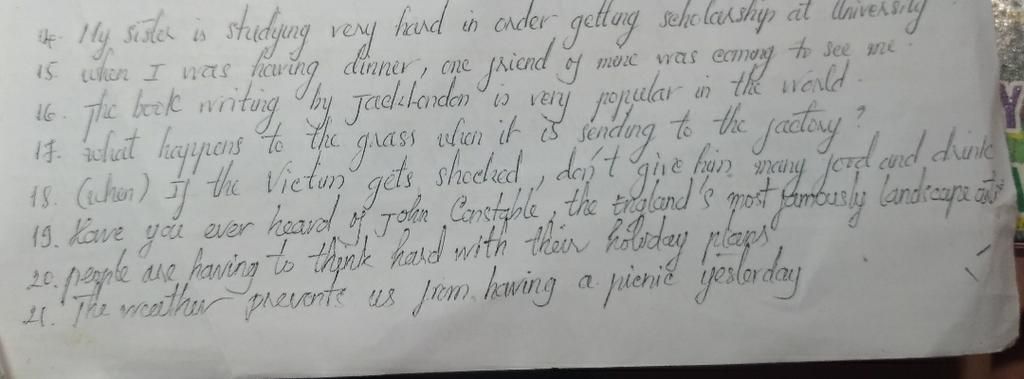 14. My sister is studying very hard in order getting scholarship at University
15. when I was having dinner, one friend of mine was coming to see me.
16. The book writing by Jack London is very popular in the world.
17. what happens to the grass when it is sending to the factory?
18. (when) If the Victim gets shocked, don't give him many food and drink
19. Have you ever heard of John Constable, the England's most famously landscape
20. people are having to think hard with their holiday plans
21. The weather prevents us from having a picnic yesterday